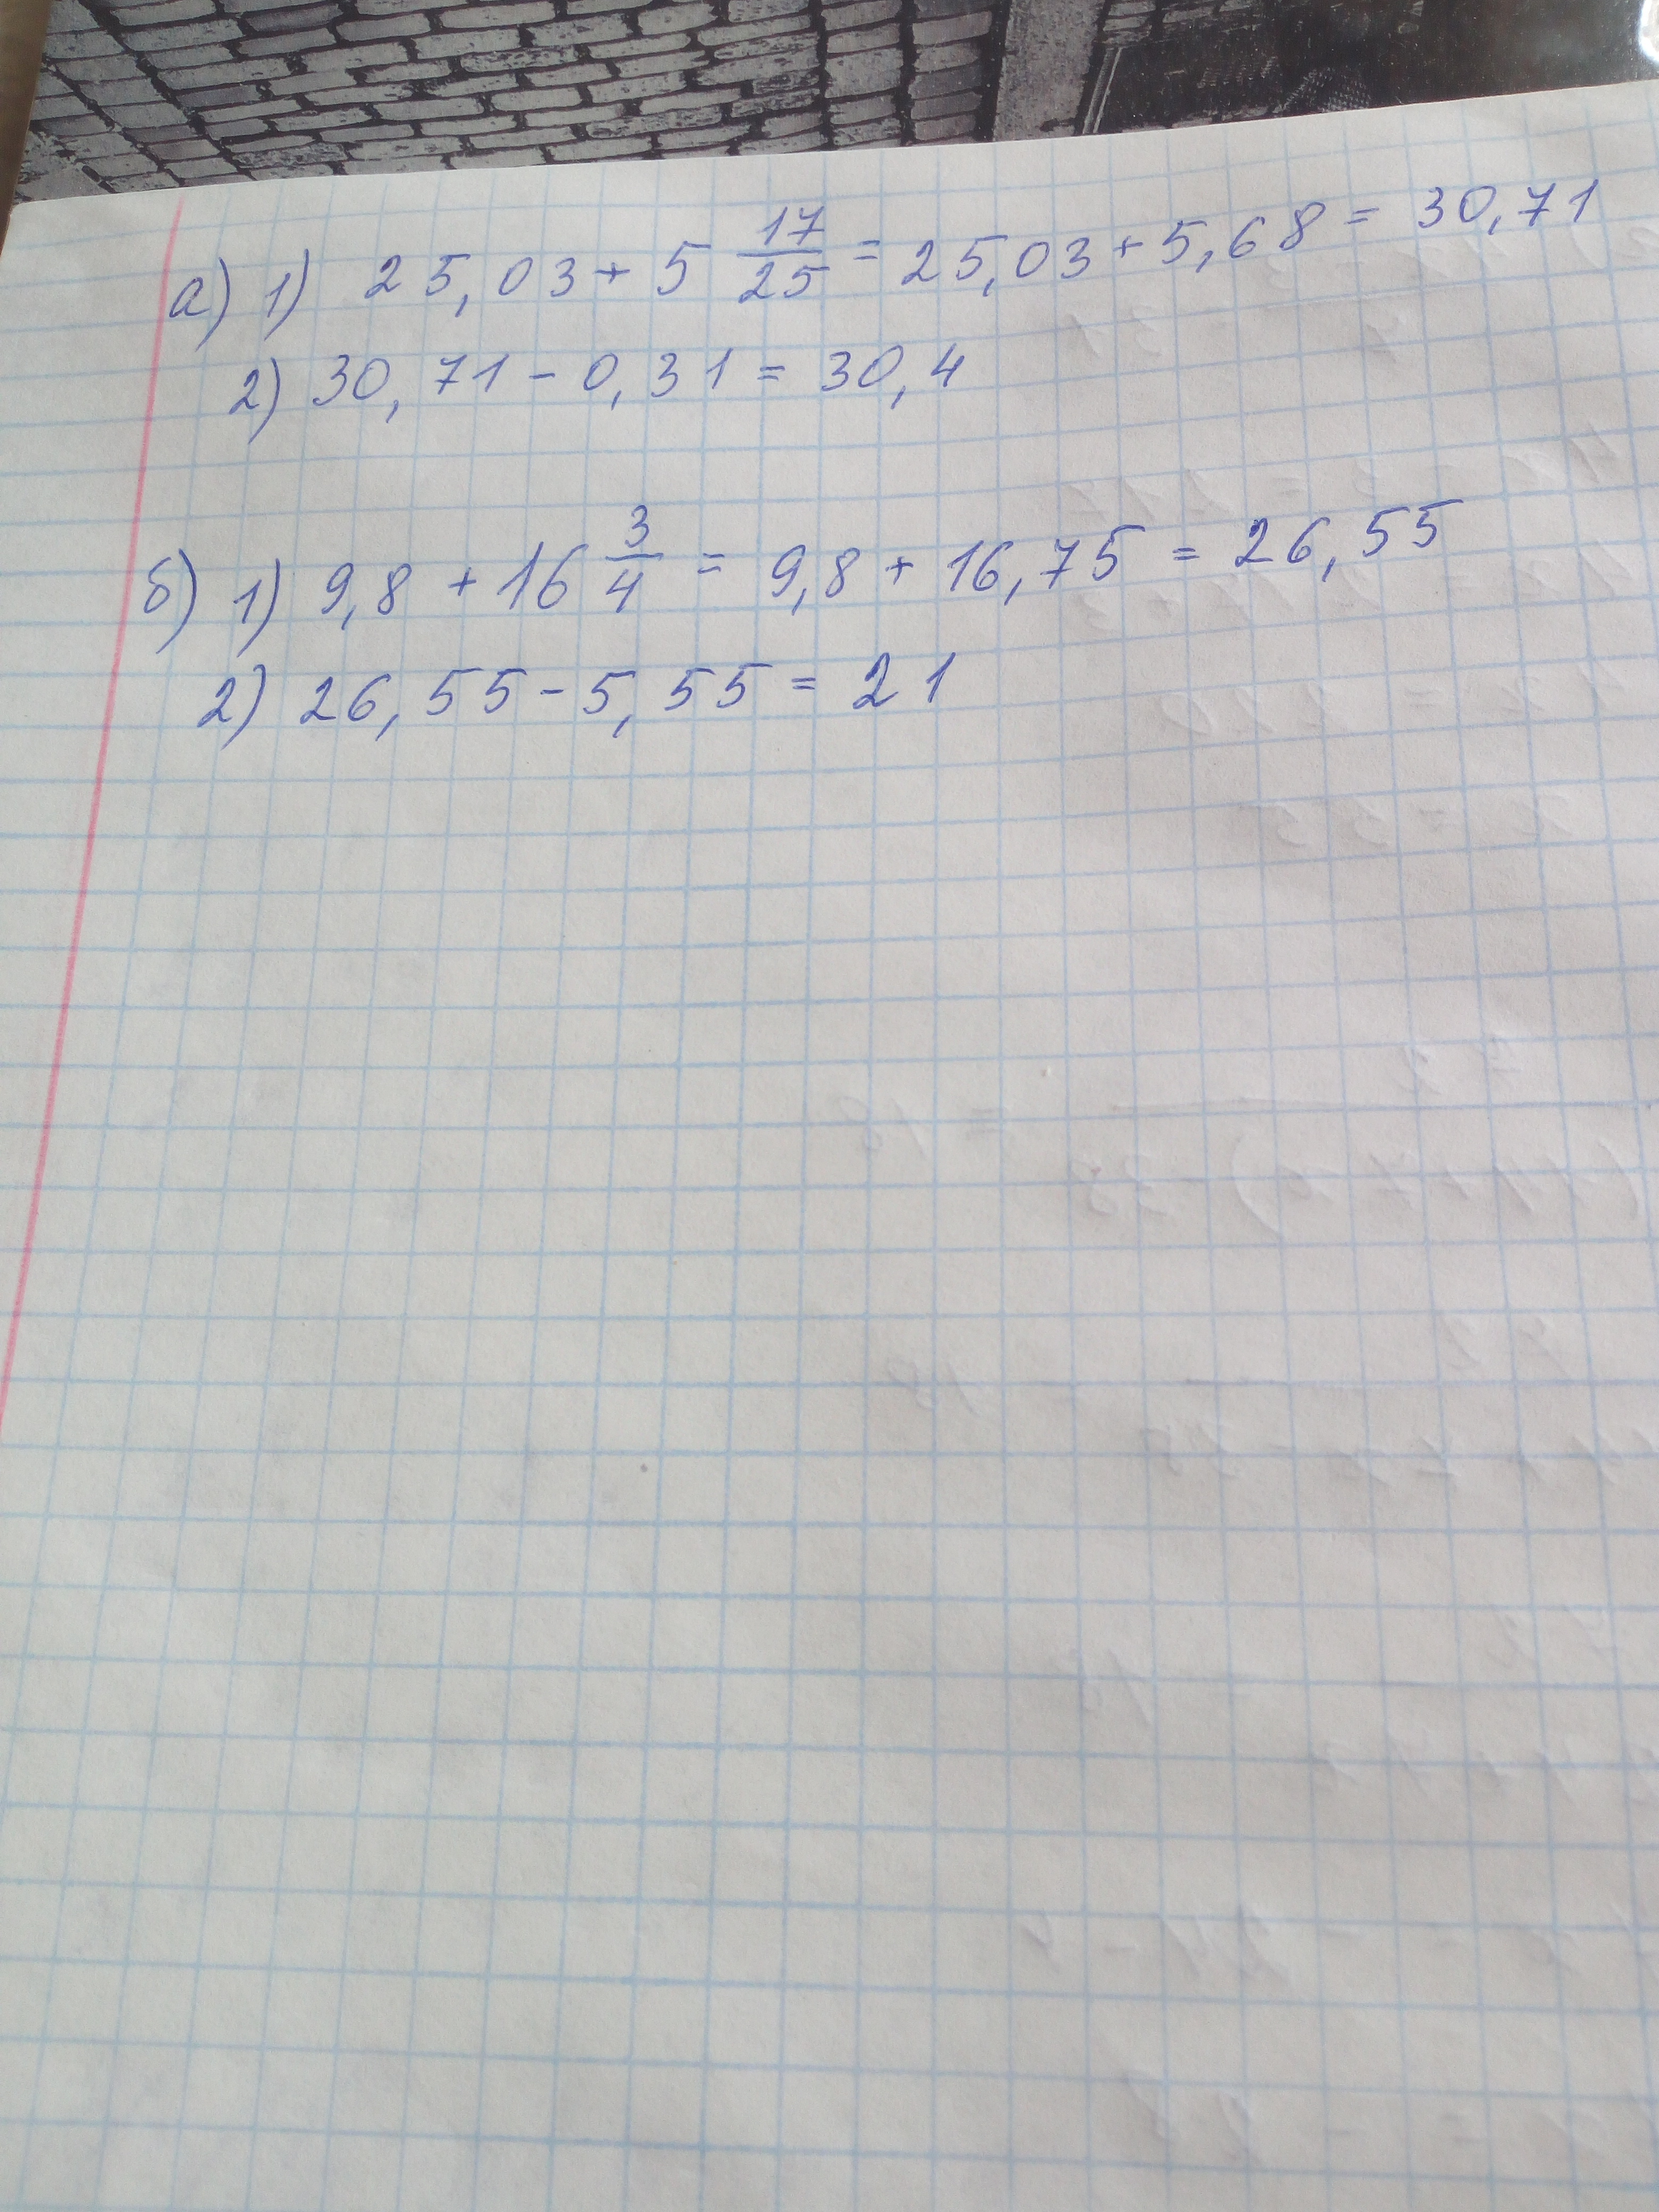 а) 1) 25,03 + 5 17/25 = 25,03 + 5,68 = 30,71
2) 30,71 - 0,31 = 30,4
б) 1) 9,8 + 16 3/4 = 9,8 + 16,75 = 26,55
2) 26,55 - 5,55 = 21